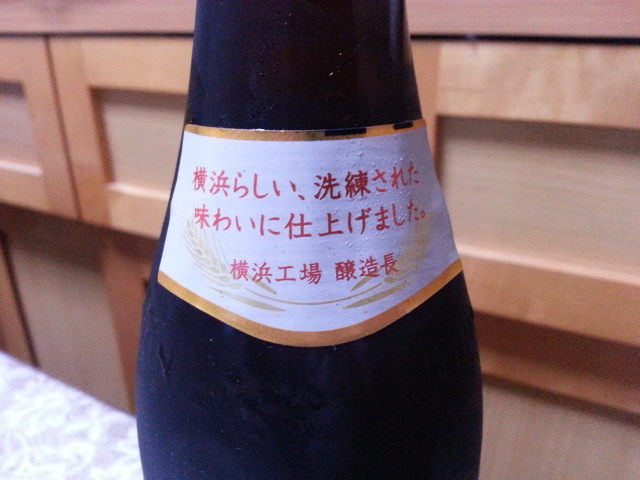 横浜らしい、洗練された
味わいに仕上げました。
横浜工場 醸造長